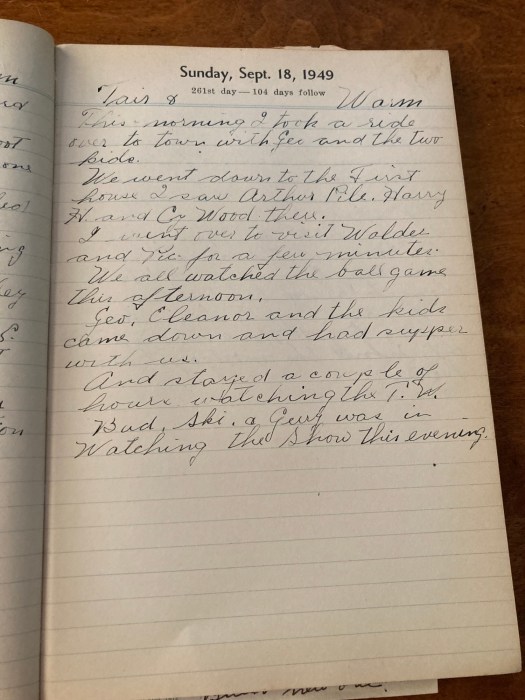 Sunday, Sept. 18, 1949
261st day—104 days follow
Fair & Warm
This morning I took a ride
over to town with Geo and the two
kids.
We went down to the First
house I saw Arthur Pile. Harry
H. and Wood there.
I went over to visit Walder
and for a few minutes.
We all watched the ball game
this afternoon.
Geo, Eleanor and the kids
came down and had supper
with us.
And stayed a couple of
hours watching the T.W.
Bud, Ski, a Gerry was in
Watching the Show this evening.